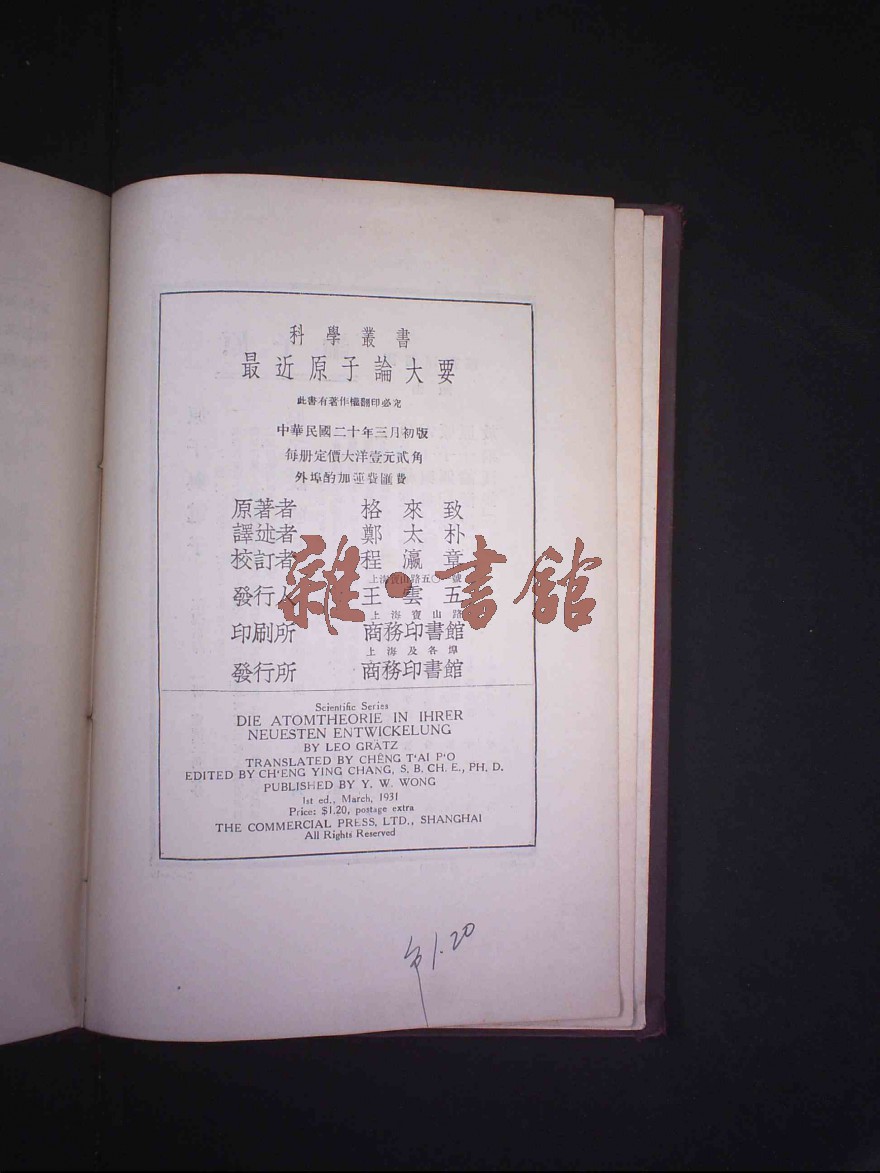 科學叢書
最近原子論大要
此書有著作權翻印必究
中華民國二十年三月初版
每册定價大洋壹元貳角
外埠酌加運費匯費
原著者 格來致
譯述者 鄭太朴
校訂者 程瀛章
上海寶山路五〇一號
發行人 王雲五
上海寶山路
印刷所 商務印書館
上海及各埠
發行所 商務印書館
雜·書館
Scientific Series
DIE ATOMTHEORIE IN IHRER
NEUESTEN ENTWICKELUNG
BY LEO GRÄTZ
TRANSLATED BY CHÊNG T'AI P'O
EDITED BY CH'ENG YING CHANG, S. B. CH. E., PH. D.
PUBLISHED BY Y. W. WONG
1st ed., March, 1931
Price: $1.20, postage extra
THE COMMERCIAL PRESS, LTD., SHANGHAI
All Rights Reserved
1.20